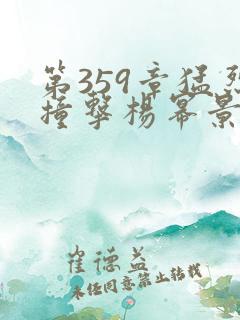 第359章猛烈
撞擊楊冪景
崔德益
未经同意禁止转载